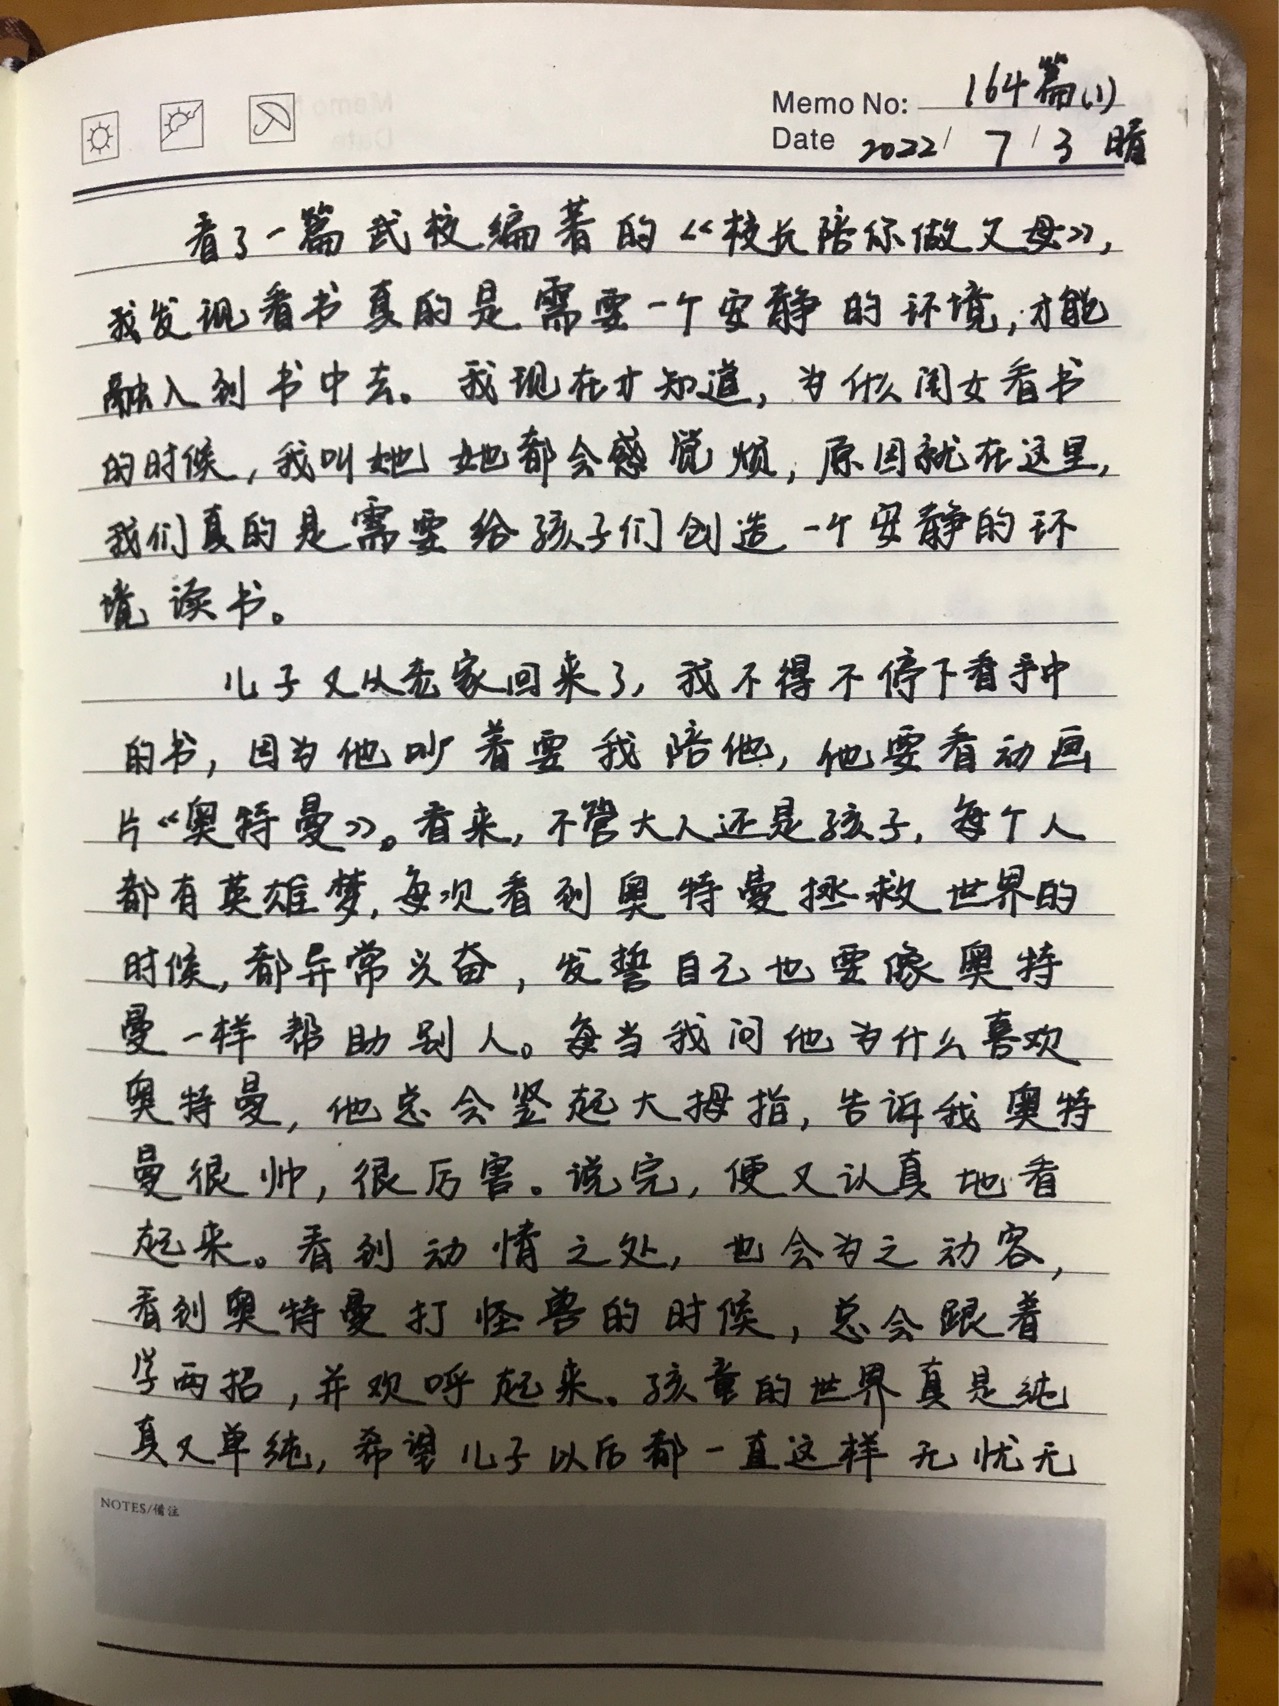 Memo No: 164篇(1)
Date 2022/7/3 晴
看了一篇武校编著的《校长陪你做父母》,
我发现看书真的是需要一个安静的环境,才能
融入到书中去。我现在才知道,为什么闺女看书
的时候,我叫她她都会感觉烦,原因就在这里,
我们真的是需要给孩子们创造一个安静的环
境读书。
儿子又从老家回来了,我不得不停下看手中
的书,因为他吵着要我陪他,他要看动画
片《奥特曼》。看来,不管大人还是孩子,每个人
都有英雄梦,每次看到奥特曼拯救世界的
时候,都异常兴奋,发誓自己也要像奥特
曼一样帮助别人。每当我问他为什么喜欢
奥特曼,他总会竖起大拇指,告诉我奥特
曼很帅,很厉害。说完,便又认真地看
起来。看到动情之处,也会为之动容,
看到奥特曼打怪兽的时候,总会跟着
学两招,并欢呼起来。孩童的世界真是纯
真又单纯,希望儿子以后都一直这样无忧无
NOTES/備注